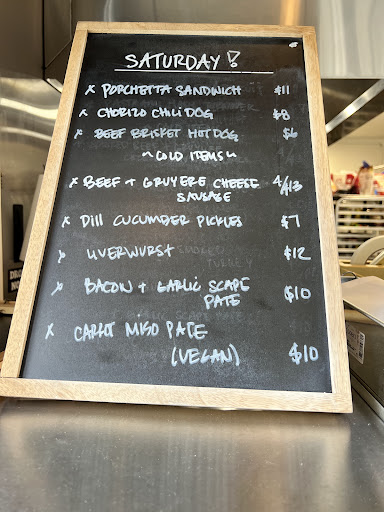 SATURDAY!
x PORCHETTA SANDWICH $11
x CHORIZO CHILIDOG $8
x BEEF BRISKET HOTDOG $6
~COLD ITEMS~
x BEEF + GRUYERE CHEESE 4/$13
SAUSAGE
x Dill CUCUMBER PICKLES $7
x LIVERWURST $12
x BACON + GARLIC SCAPE
PATE $10
x CARROT MISO PATE
(VEGAN) $10